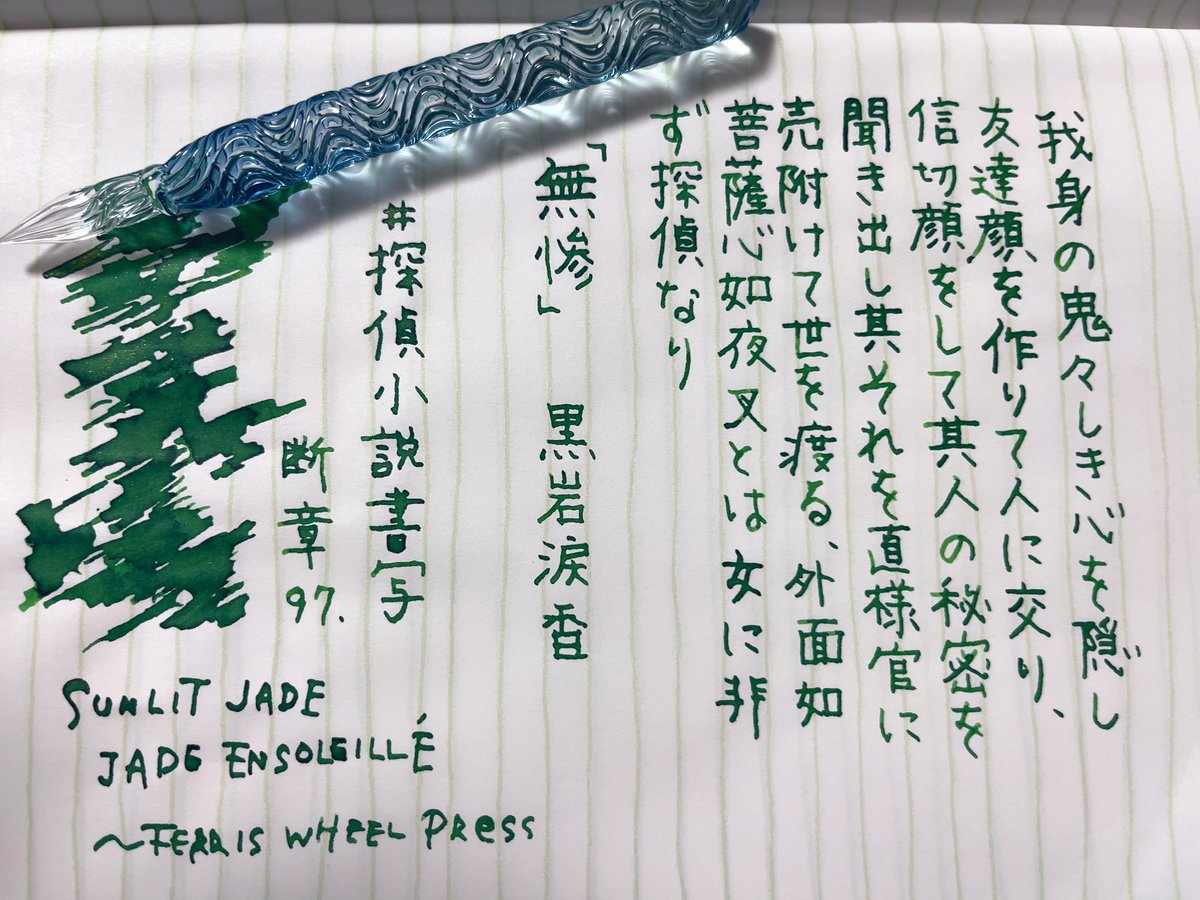 我身の鬼々しき心を隠し
友達顔を作りて人に交り、
信切顔をして其人の秘密を
聞き出し其それを直様官に
売附けて世を渡る、外面如
菩薩心如夜叉とは女に非
ず探偵なり
「無惨」 黒岩涙香
#探偵小説書写
断章97.
SUNLIT JADE
JADE ENSOLEILLÉ
~FERRIS WHEEL PRESS